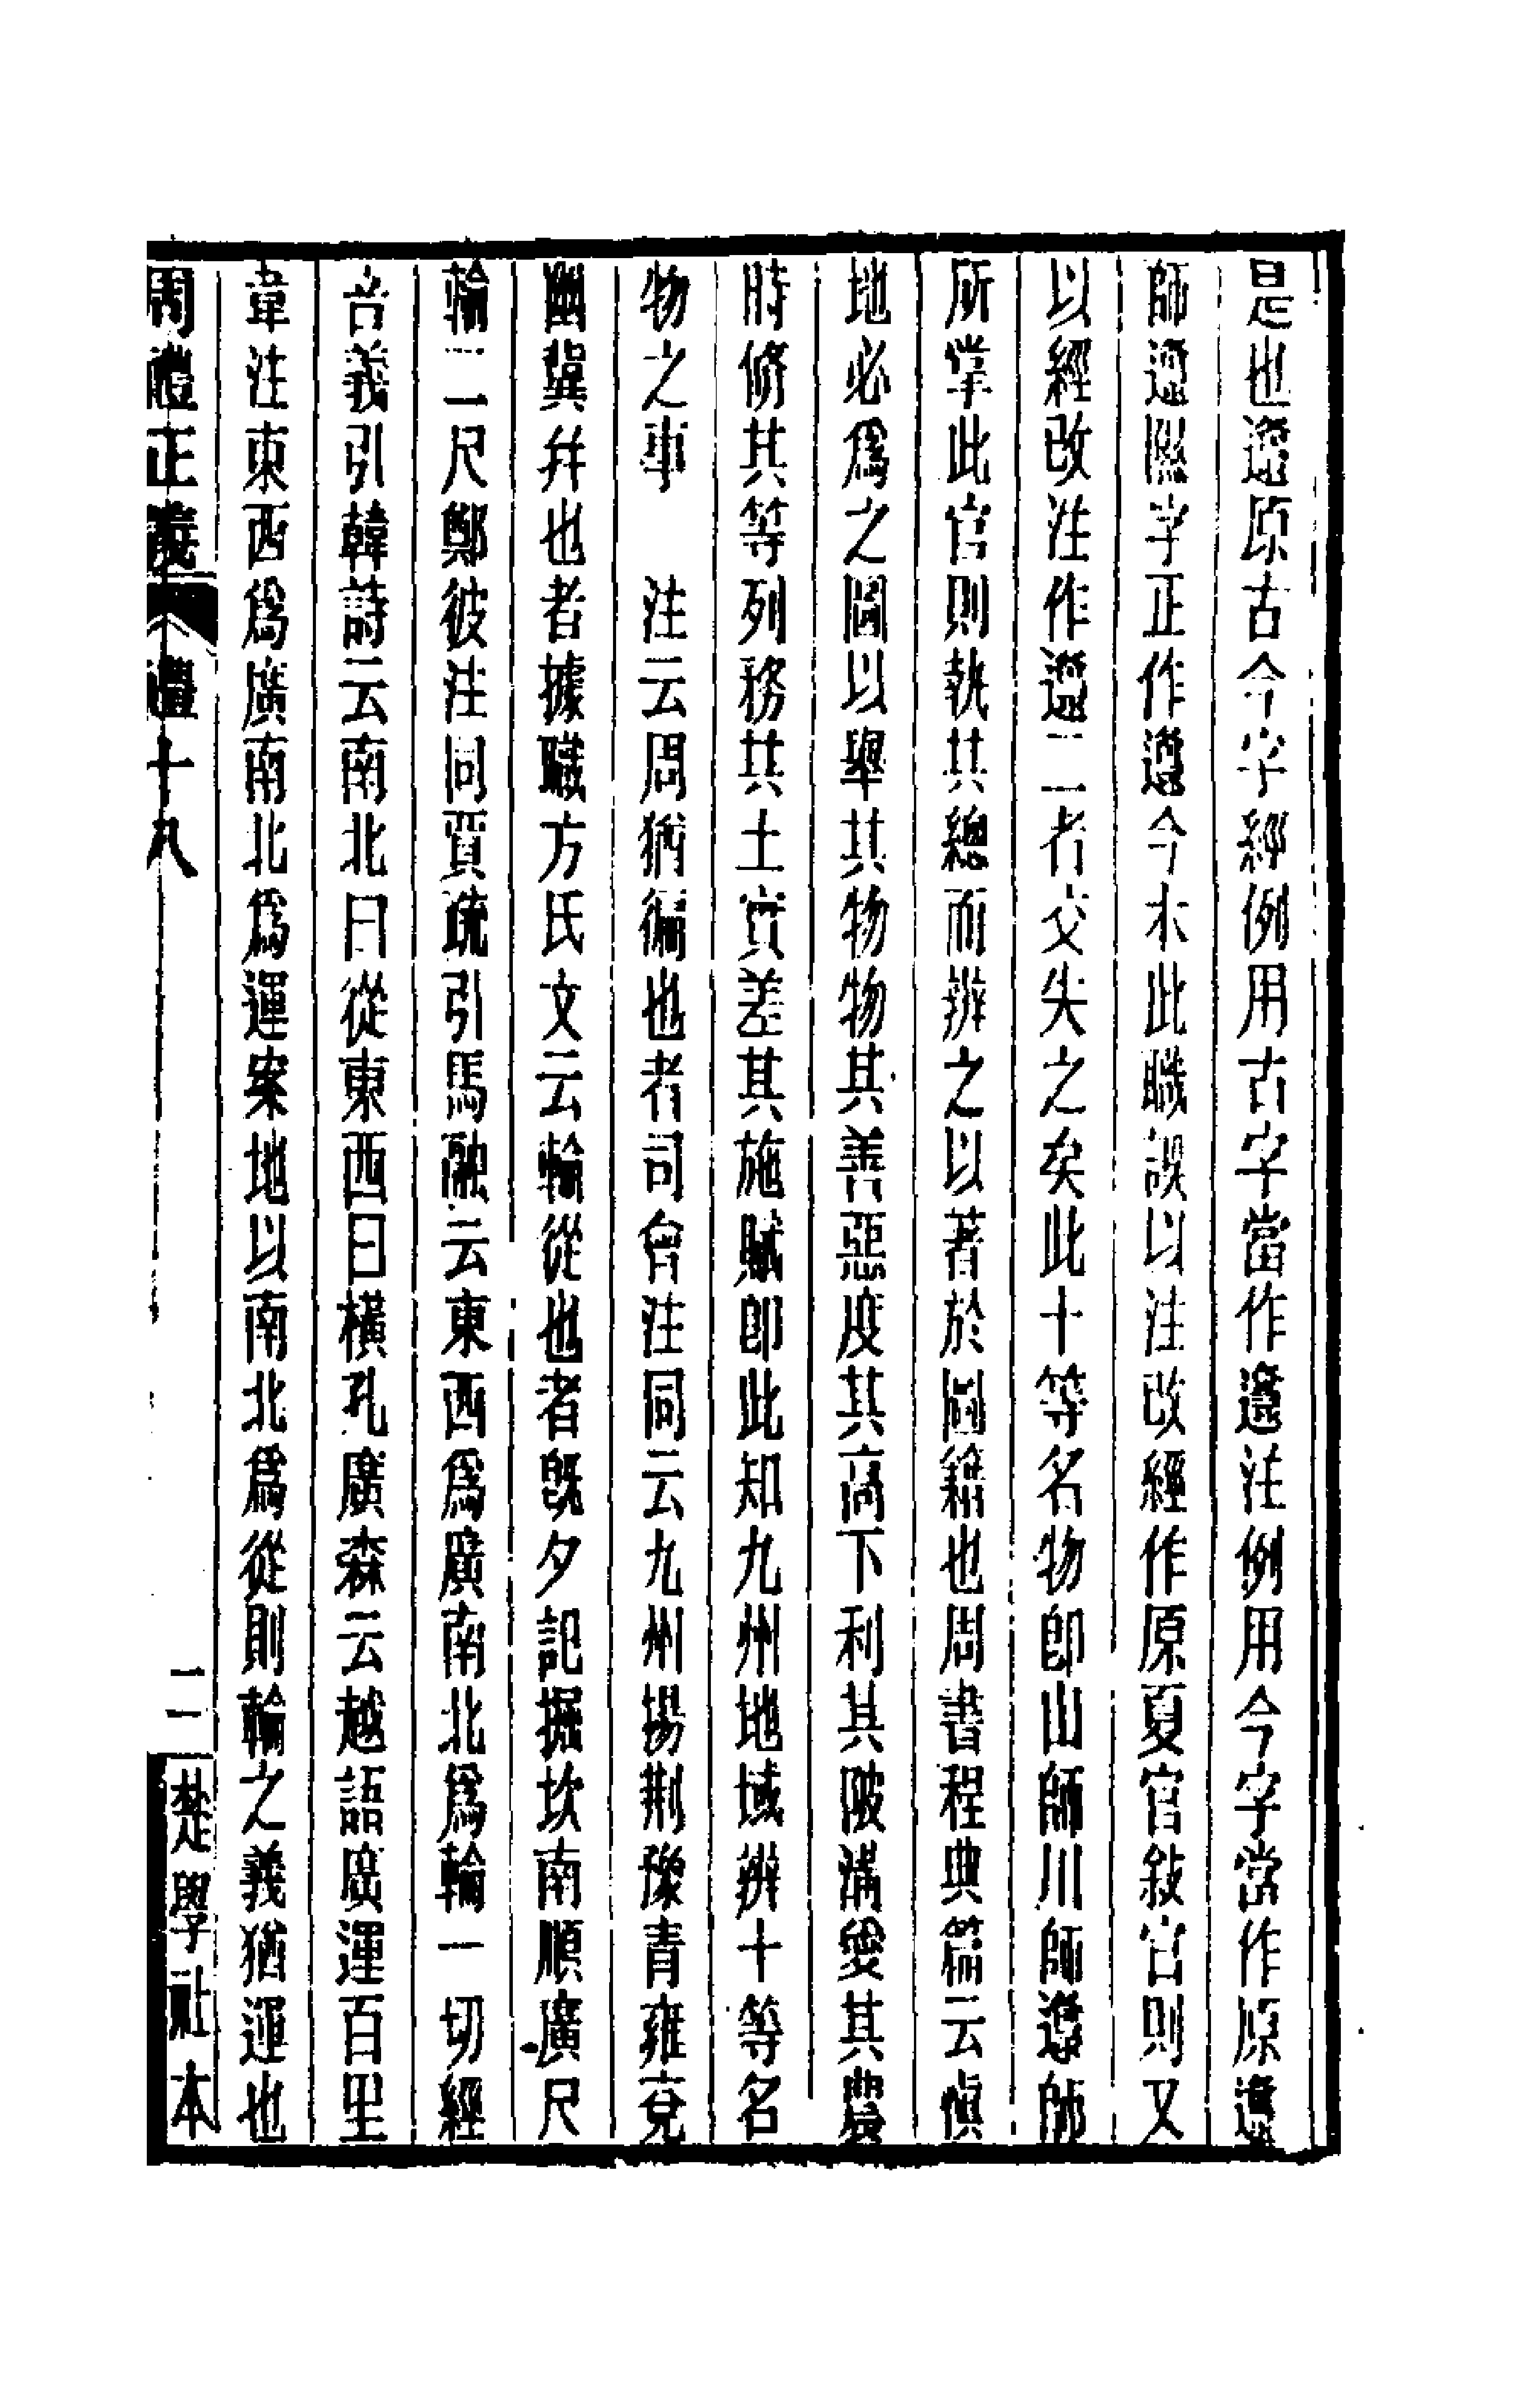 是也邍原古今字經例用古字當作邍注例用今字當作原邍
師邍隰字正作邍今本此職誤以注改經作原夏官敍官則又
以經改注作邍二者交失之矣此十等名物卽山師川師邍師
所掌此官則執其總而辨之以著於圖籍也周書程典篇云愼
地必爲之圖以舉其物物其善惡度其高下利其陂溝愛其農
時修其等列務其土實差其施賦卽此知九州地域辨十等名
物之事　注云周猶徧也者司會注同云九州揚荆豫青雍兗
幽冀幷也者據職方氏文云輪從也者旣夕記掘坎南順廣尺
輪二尺鄭彼注同賈疏引馬融云東西爲廣南北爲輪一切經
音義引韓詩云南北曰從東西曰橫孔廣森云越語廣運百里
韋注東西爲廣南北爲運案地以南北爲從則輪之義猶運也
周禮正義 禮十八 二 楚學社本